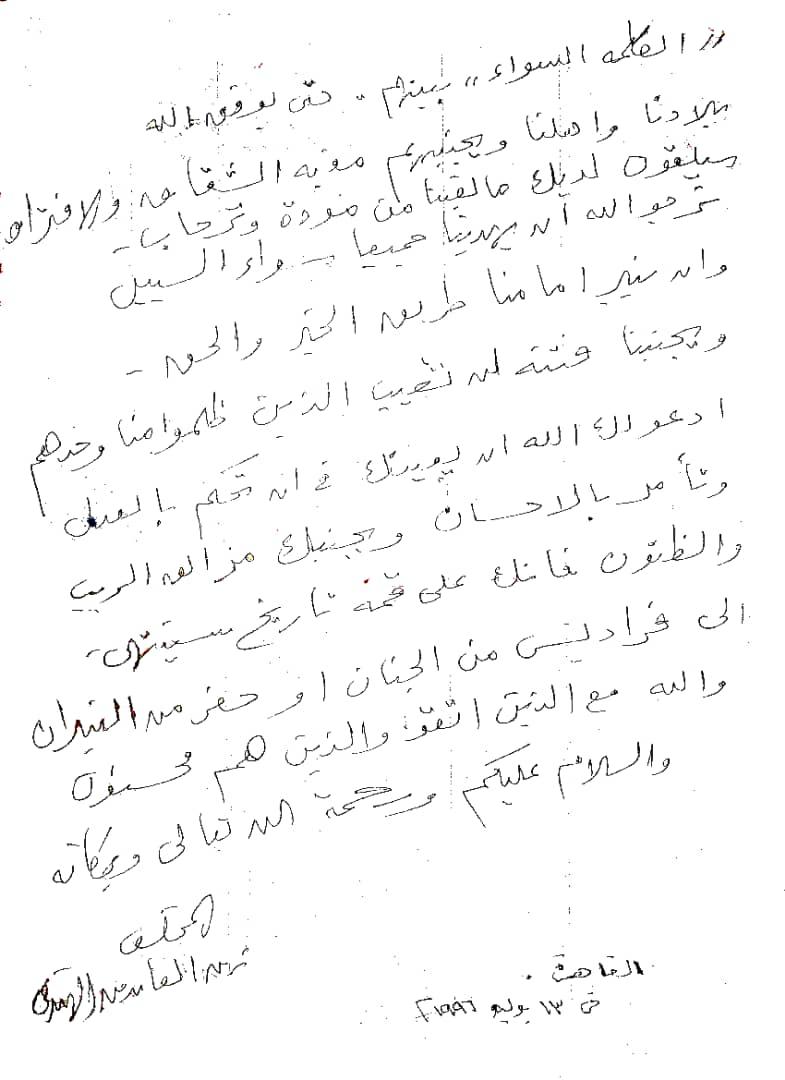 „ الكلمة السواء „ بينهم . حتى يوفق الله
بلادنا واهلنا ويجنبهم مغبة الشقاق والافتراق
سيلقون لديك مالقينا من مودة وترحاب -
نرجو الله أن يهدينا جميعا سواء السبيل
وان ينير امامنا طريق الخير والحق -
ويجنبنا فتنة لن تصيب الذين ظلموا منا وحدهم
ادعو لك الله ان يؤيدك في ان تحكم بالعدل
وتأمر بالاحسان ويجنبك مزالق الريب
والظنون فانك على قمة تاريخ سينتهى -
الى فراديس من الجنان او حفر من النيران
والله مع الذين اتقوا والذين هم محسنون
والسلام عليكم ورحمة الله تعالى وبركاته
المخلص
القاهرة .
فى ١٣ يوليو ١٩٩٦